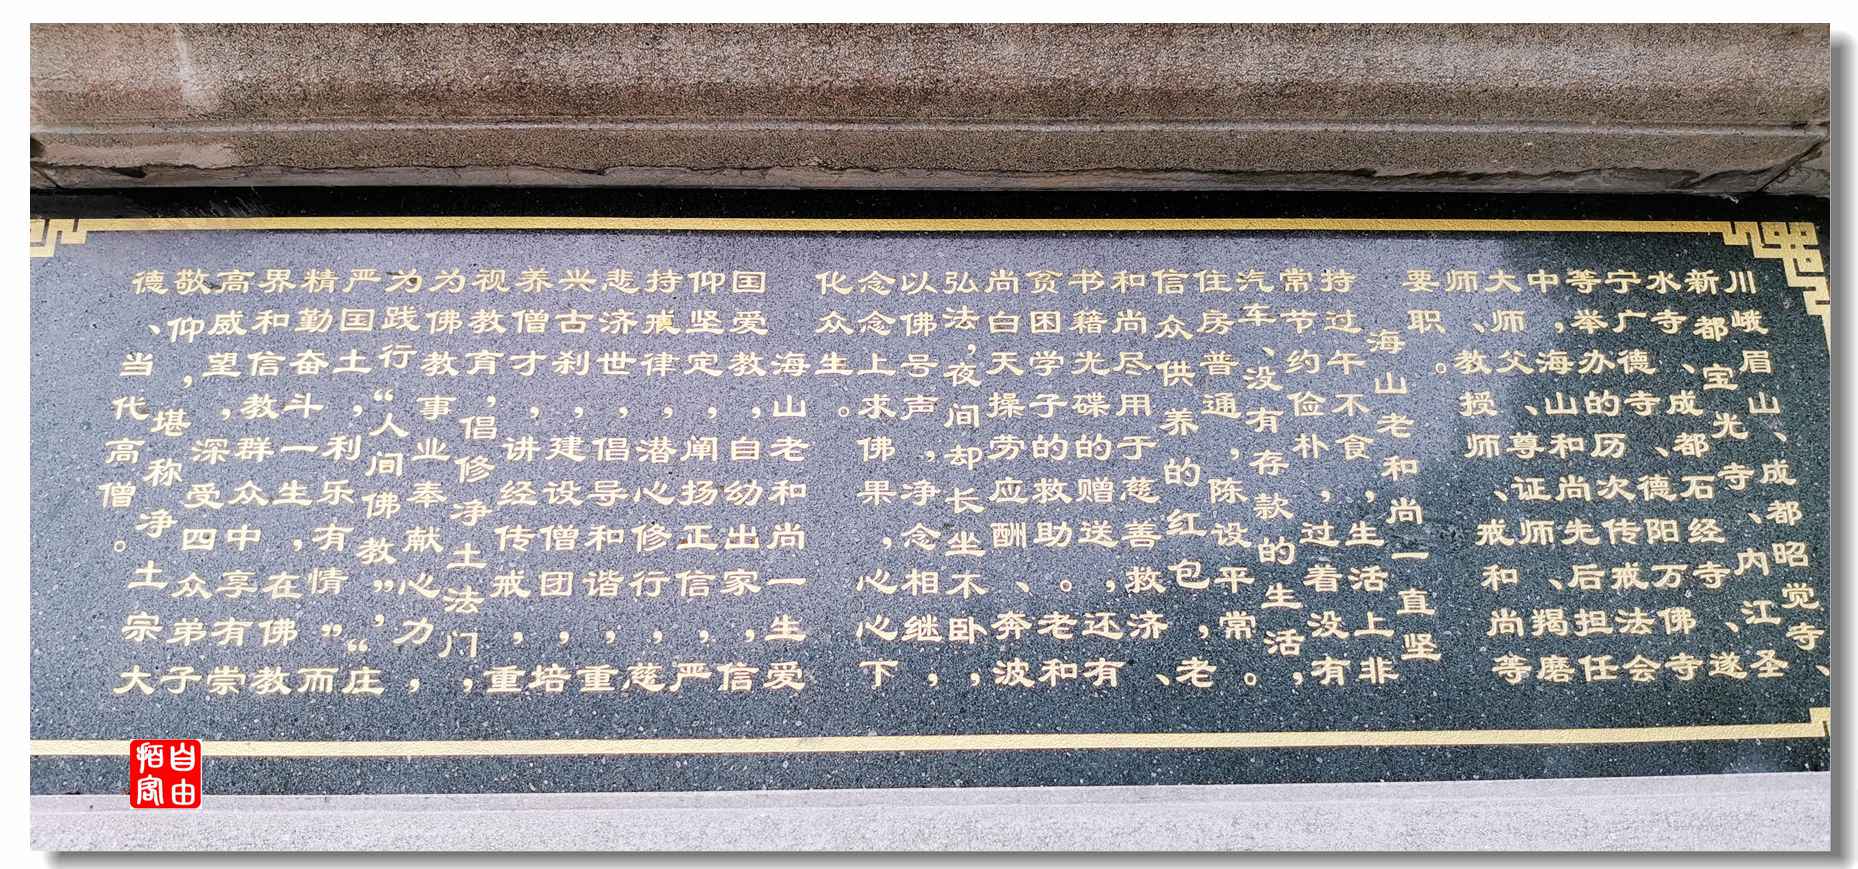 川峨眉山、成都昭觉寺、
新都宝光寺、内江圣
水寺、成都石经寺、遂
宁广德寺、德阳万佛寺
等举办的历次传戒法会
中，海山和尚先后担任
大师父、尊证师、羯磨
师、教授师、戒和尚等
要职。
海山老和尚一直坚
持过午不食，生活上非
常节约俭朴，过着没有
汽车、没有存款的生活，
住房普通，陈设平常。
信众供养的红包，老
和尚尽用于慈善救济、
书籍光碟的赠送，还有
贫困学子的救助。老和
尚白天操劳应酬、奔波
弘法，夜间却长坐不卧，
以佛号声声，净念相继，
念念上求佛果，心心下
化众生。
海山老和尚一生爱
国爱教，自幼出家，信
仰坚定，阐扬正信，严
持戒律，潜心修行，慈
悲济世，倡导和谐，重
兴古刹，建设僧团，培
养僧才，讲经传戒，重
视教育，倡修净土法门，
为佛教事业奉献心力，
为践行“人间佛教”，“庄
严国土，利乐有情”而
精勤奋斗一生，在佛教
界和信教群众中享有崇
高威望，深受四众弟子
敬仰，堪称净土宗大
德、当代高僧。
自由
陌客